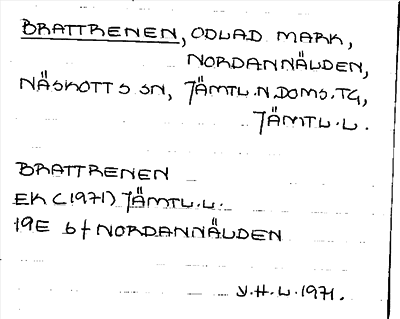 BRATTRENEN, ODLAD MARK,
NORDANNÄLDEN,
NÄSKOTTS SN, JÄMTL.N.DOMS.TG,
JÄMTL.L.
BRATTRENEN
EK (1971) JÄMTL.L.
19E 6f NORDANNÄLDEN
V.H.L.1971.